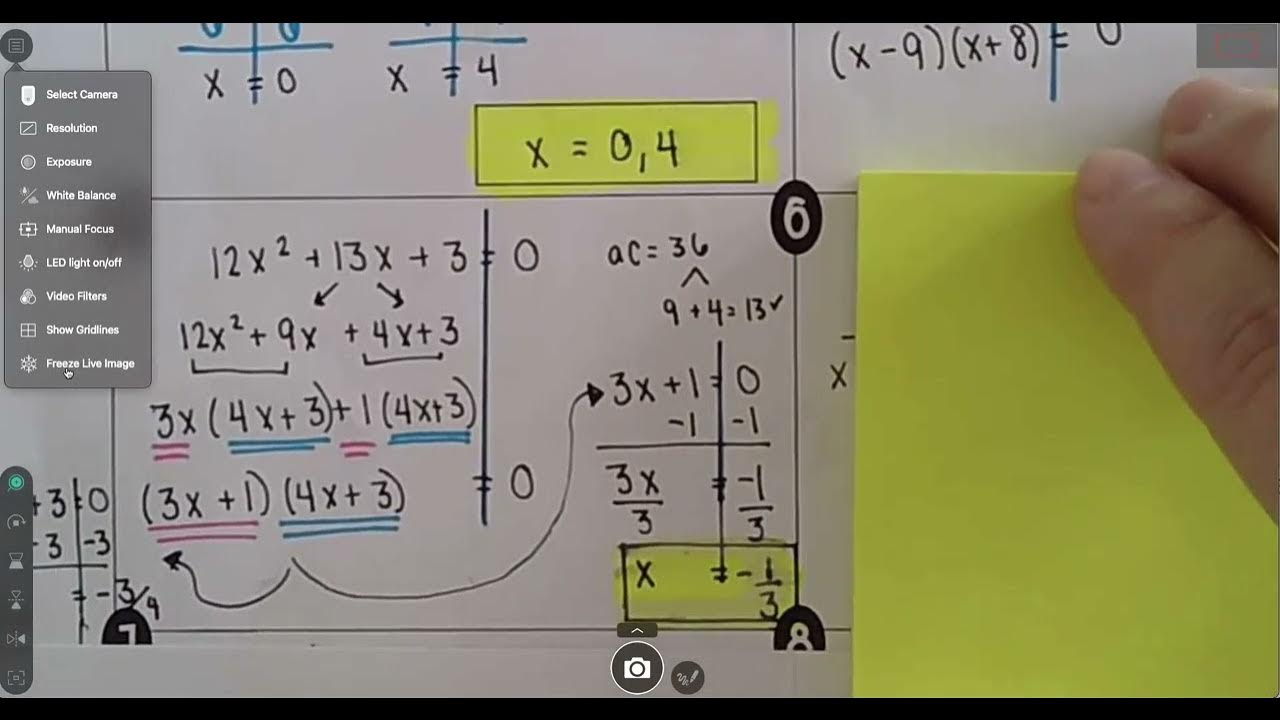 Select Camera
Resolution
Exposure
White Balance
Manual Focus
LED light on/off
Video Filters
Show Gridlines
Freeze Live Image
x = 0
x = 4
x = 0, 4
(x - 9)(x + 8) = 0
6
12x² + 13x + 3 = 0
12x² + 9x + 4x + 3
3x(4x + 3) + 1(4x+3)
(3x + 1)(4x + 3) = 0
ac = 36
9 + 4 = 13 ✓
3x + 1 = 0
-1 -1
3x/3 = -1/3
x = -1/3
x
+ 3 = 0
- 3 -3
= -3/
7
8